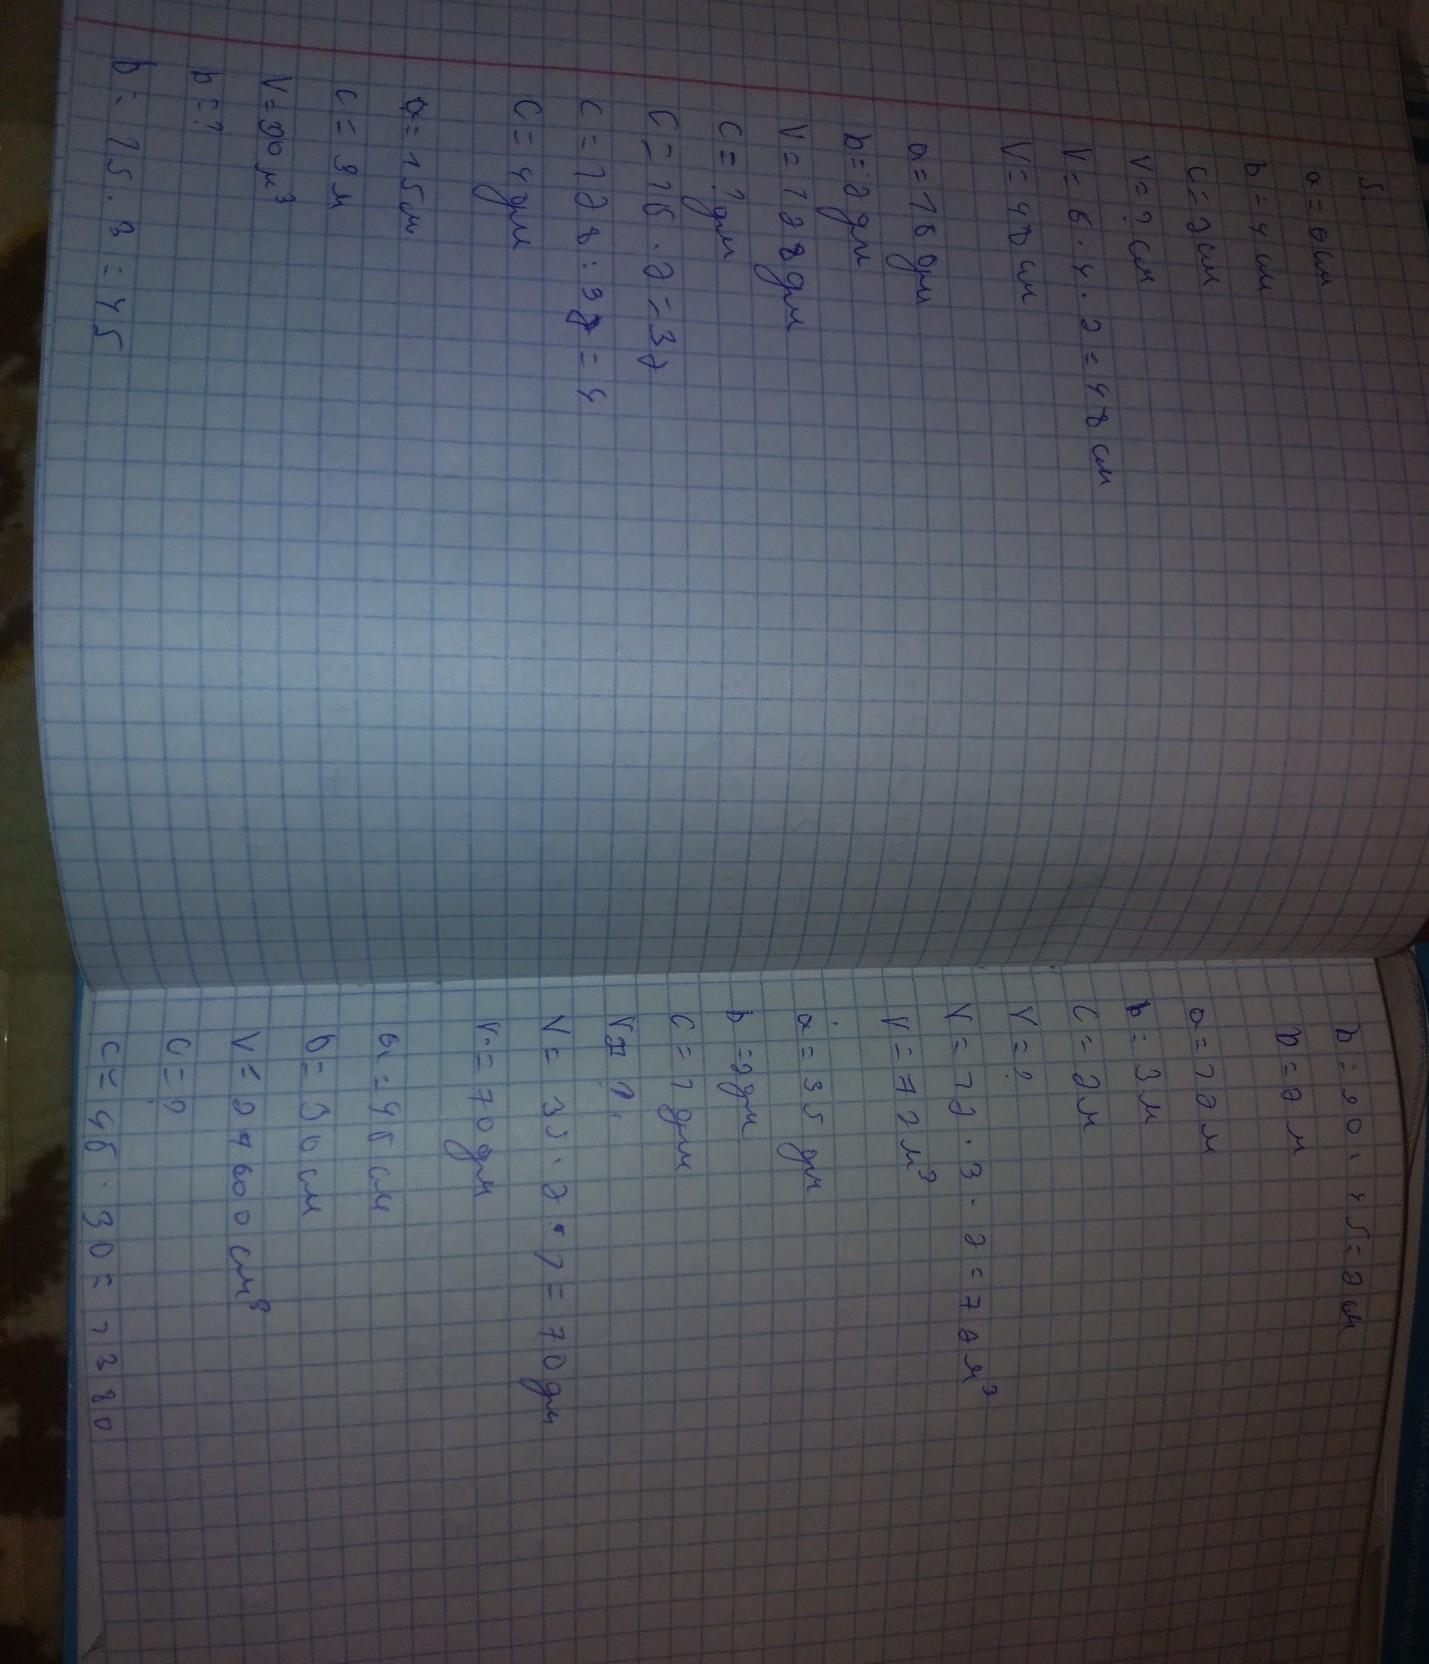 5.
a = 6 см
b = 4 см
c = 2 см
V = ? см
V = 6 · 4 · 2 = 48 см
V = 48 см
a = 16 дм
b = 2 дм
V = 128 дм
c = ? дм
C = 16 · 2 = 32
C = 128 : 32 = 4
C = 4 дм
a = 15 м
c = 3 м
V = 90 м³
b = ?
b = 15 · 3 = 45
b = 90 : 45 = 2 м
b = 2 м
a = 12 м
b = 3 м
c = 2 м
V = ?
V = 12 · 3 · 2 = 72 м³
V = 72 м³
a = 35 дм
b = 2 дм
c = 1 дм
V = ?
V = 35 · 2 · 1 = 70 дм
V = 70 дм
a = 46 см
b = 30 см
V = 27600 см³
c = ?
c = 46 · 30 = 1380